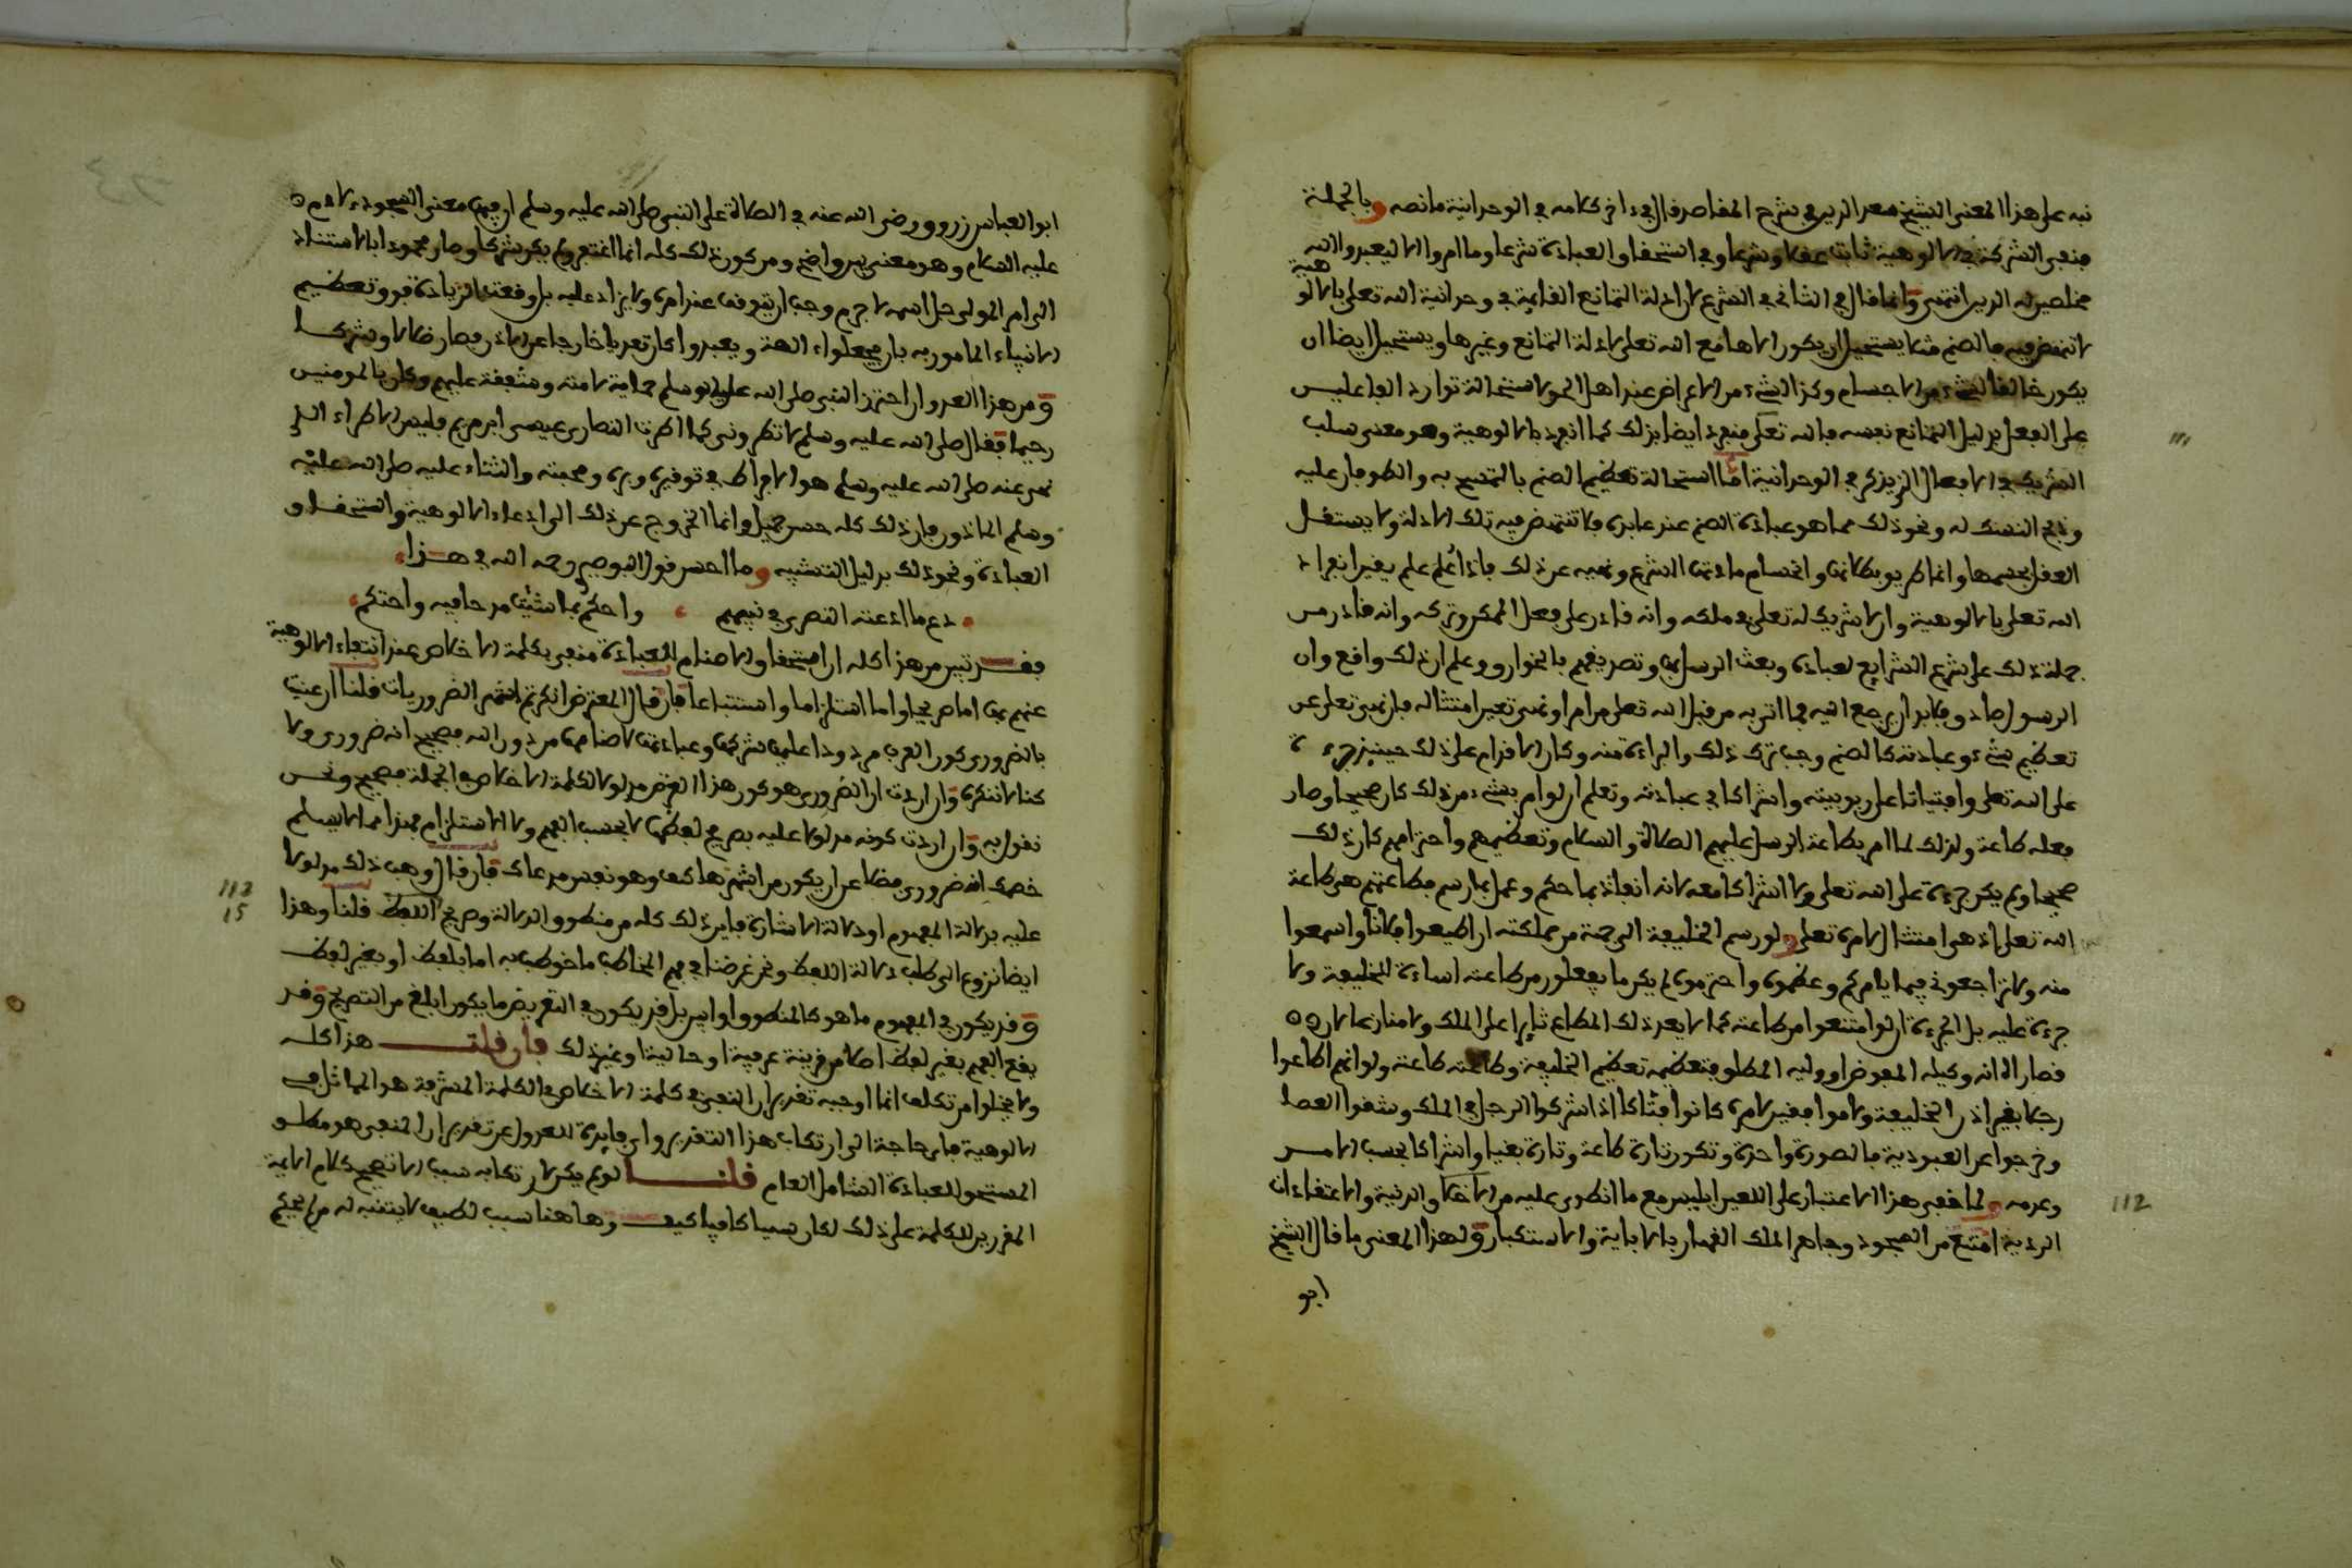 نبه على هذا المعنى الشيخ سعد الدين في شرح المقاصد قال في ءاخر كلامه في الوحدانية ما نصه وبالجملة
فنفي الشركة في الالوهية ثابت عقلا وشرعا وفي استحقاق العبادة شرعا وما امروا الا ليعبدوا الله
مخلصين له الدين انتهى وانما قال في الثاني في الشرع لان ادلة التمانع القايمة في وحدانية الله تعلى بالالوهية
لا تنتهض فيه فالصنم مثلا يستحيل ان يكون الاها مع الله تعلى لادلة التمانع وغيرها ويستحيل ايضا ان
يكون خالقا لشيء من الاجسام وكذا لشيء من الاعراض عند اهل الحق لاستحالة توارد الفاعلين
على الفعل بدليل التمانع نفسه فالله تعلى منفرد ايضا بذلك كما انفرد بالالوهية وهو معنى سلب
الشريك في الافعال الذي يذكر في الوحدانية اما استحالة تعظيم الصنم بالتمسح به والطوفان عليه
وذبح النسك له ونحو ذلك مما هو عبادة الصنم عند عابده فلا تنتهض فيه تلك الادلة ولا يستقل
العقل بحسمها وانما طريق بطلانها وانحسام مادتها الشرع ونهيه عن ذلك فاذا علم علم يقين انفراد
الله تعلى بالالوهية وان لا شريك له تعلى في ملكه وانه قادر على فعل الممكن وتركه وانه قادر من
جملة ذلك على شرع الشرايع لعباده وبعث الرسل بها وتصديقهم بالخوارق وعلم ان ذلك واقع وان
الرسول صادق فلا بد ان يرجع اليه فيما اتى به من قبل الله تعلى من امر او نهي تعين امتثاله فان نهى تعلى عن
تعظيم شيء وعبادته كالصنم وجب ترك ذلك والبراءة منه وكان الاقدام على ذلك حينيذ جرءة
على الله تعلى وافتياتا على ربوبيته واشراكا في عبادته وتعلم ان لو امر بشيء من ذلك كان صحيحا وصار
فعله طاعة ولذلك لما امر بطاعة الرسل عليهم الصلاة والسلام وتعظيمهم واحترامهم كان ذلك
صحيحا ولم يكن جرءة على الله تعلى ولا اشراكا معه لانه انفاذ بما حكم وعمل بما رسم فطاعتهم هي طاعة
الله تعلى اذ هي امتثال لامره تعلى ولو رسم الخليفة الى جهة من مملكته ان اطيعوا فلانا واسمعوا
منه ولا تراجعوه فيما يامركم وعظموه واحترموه لم يكن ما يفعلون من طاعته اساءة للخليفة ولا
جرءة عليه بل الجرءة ان لو امتنعوا من طاعته كما لا يعد ذلك المطاع ثايرا على الملك ولا منازعا لان
قصاراه انه وكيله المفوض او وليه المطلق فتعظيمه تعظيم الخليفة وطاعته طاعة ولو انهم اطاعوا
رجلا بغير اذن الخليفة وقاموا بغير امره كانوا قتلا اذ اشركوا الرجل في الملك وشقوا العصا
وخرجوا عن العبودية فالصورة واحدة وتكون تارة طاعة وتارة بغيا واشراكا بحسب الامر
وعدمه ولما خفي هذا الاعتبار على اللعين ابليس مع ما انطوى عليه من الاخلاق الدنية والاعتقادات
الردية امتنع من السجود وجاهر الملك القهار بالاباية والاستكبار ولهذا المعنى ما قال الشيخ
ابو
ابو العباس زروق رضي الله عنه في الصلاة على النبي صلى الله عليه وسلم ان فيها معنى السجود لادم
عليه السلام وهو معنى بين واضح ومن كون ذلك كله انما اغتفر ولم يكن شركا وصار محمودا بالاستناد
الى امر المولى جل اسمه لا جرم وجب ان يتوقف عند امره ولا يزاد عليه بل وقعت الزيادة في تعظيم
الانبياء المامور به بان يجعلوا ءالهة ويعبدوا كان تعديا خارجا عن الاذن فصار ضلالا وشركا
ومن هذا العدوان احترز النبي صلى الله عليه وسلم حماية لامته وشفقة عليهم وكان بالمومنين
رحيما فقال صلى الله عليه وسلم لا تطروني كما اطرت النصارى عيسى ابن مريم فليس الاطراء الذي
نهى عنه صلى الله عليه وسلم هو الافراط في توقيره وبره ومحبته والثناء عليه صلى الله عليه
وسلم الماذون فان ذلك كله حسن جميل وانما الخروج عن ذلك الى ادعاء الالوهية واستحقاق
العبادة ونحو ذلك بدليل التشبيه وما احسن قول البوصيري رحمه الله في هذا
دع ما ادعته النصرى في نبيهم واحكم بما شئت مدحا فيه واحتكم
فقد تبين من هذا كله ان استحقاق الاصنام العبادة منفي بكلمة الاخلاص عند انتفاء الالوهية
عنهم بها اما صريحا واما استلزاما واستتباعا فان قال المعترض انكرتم اشهر الضروريات قلنا ان عنيت
بالضروري كون العرب مردودا عليها شركها وعبادتها لاصنامها من دون الله فصحيح انه ضروري ولا
كنا لا ننكره وان اردت ان الضروري هو كون هذا الغرض مدلولا لكلمة الاخلاص في الجملة فصحيح ونحن
نقول به وان اردت كونه مدلولا عليه بصريح لفظها لا بحسب الفهم ولا الاستلزام فهذا مما لا يسلم
خصمك انه ضروري فضلا عن ان يكون من اشهرها كيف وهو نفس مدعاك فان قال وهب ذلك مدلولا
عليه بدلالة المفهوم او دلالة الاشارة فاين ذلك كله من منطوق الدلالة وصريح اللفظ قلنا وهذا
ايضا نزوع الى طلب دلالة اللفظ ونحن غرضنا في فهم المخاطب ما خوطب به اما بلفظ او بغير لفظ
وقد يكون في المفهوم ما هو كالمنطوق او ابين بل قد يكون في التعريض ما يكون ابلغ من التصريح وقد
يقع الفهم بغير لفظ اصلا من قرينة عرفية او حالية او غير ذلك فان قلت هذا كله
ولا يخلوا من تكلف انما اوجبه تقرير ان النفي في كلمة الاخلاص في الكلمة المشرفة هو المماثل في
الالوهية فاي حاجة الى ارتكاب هذا التقرير واي فايدة للعدول عن تقرير ان المنفي هو مطلق
المستحق للعبادة الشامل العام قلنا لو لم يكن لارتكابه سبب الا تصحيح كلام الايمة
المقررين للكلمة على ذلك لكان سببا كافيا كيف وهاهنا سبب لطيف لا يتنبه له من لم يحكم